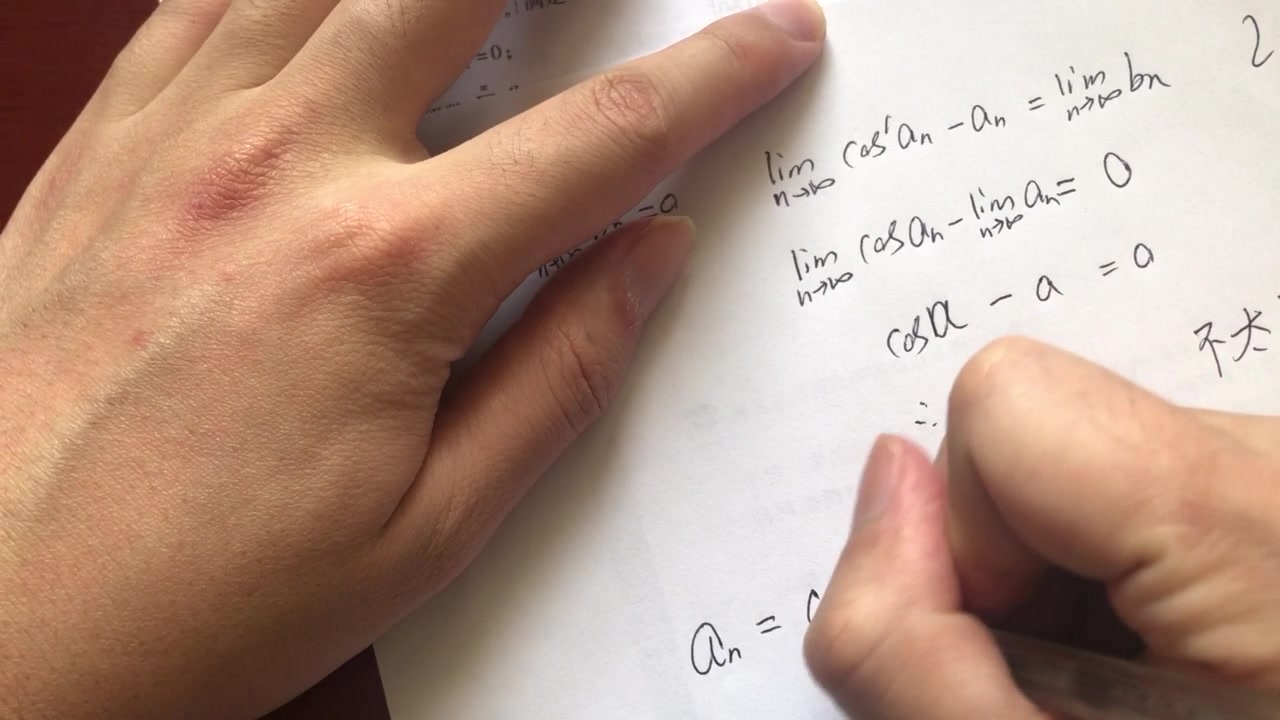 =0;
=a
lim n→∞ cos an - an = lim n→∞ bn
lim n→∞ cos an - lim n→∞ an = 0
cos a - a = a
∴
an =
2